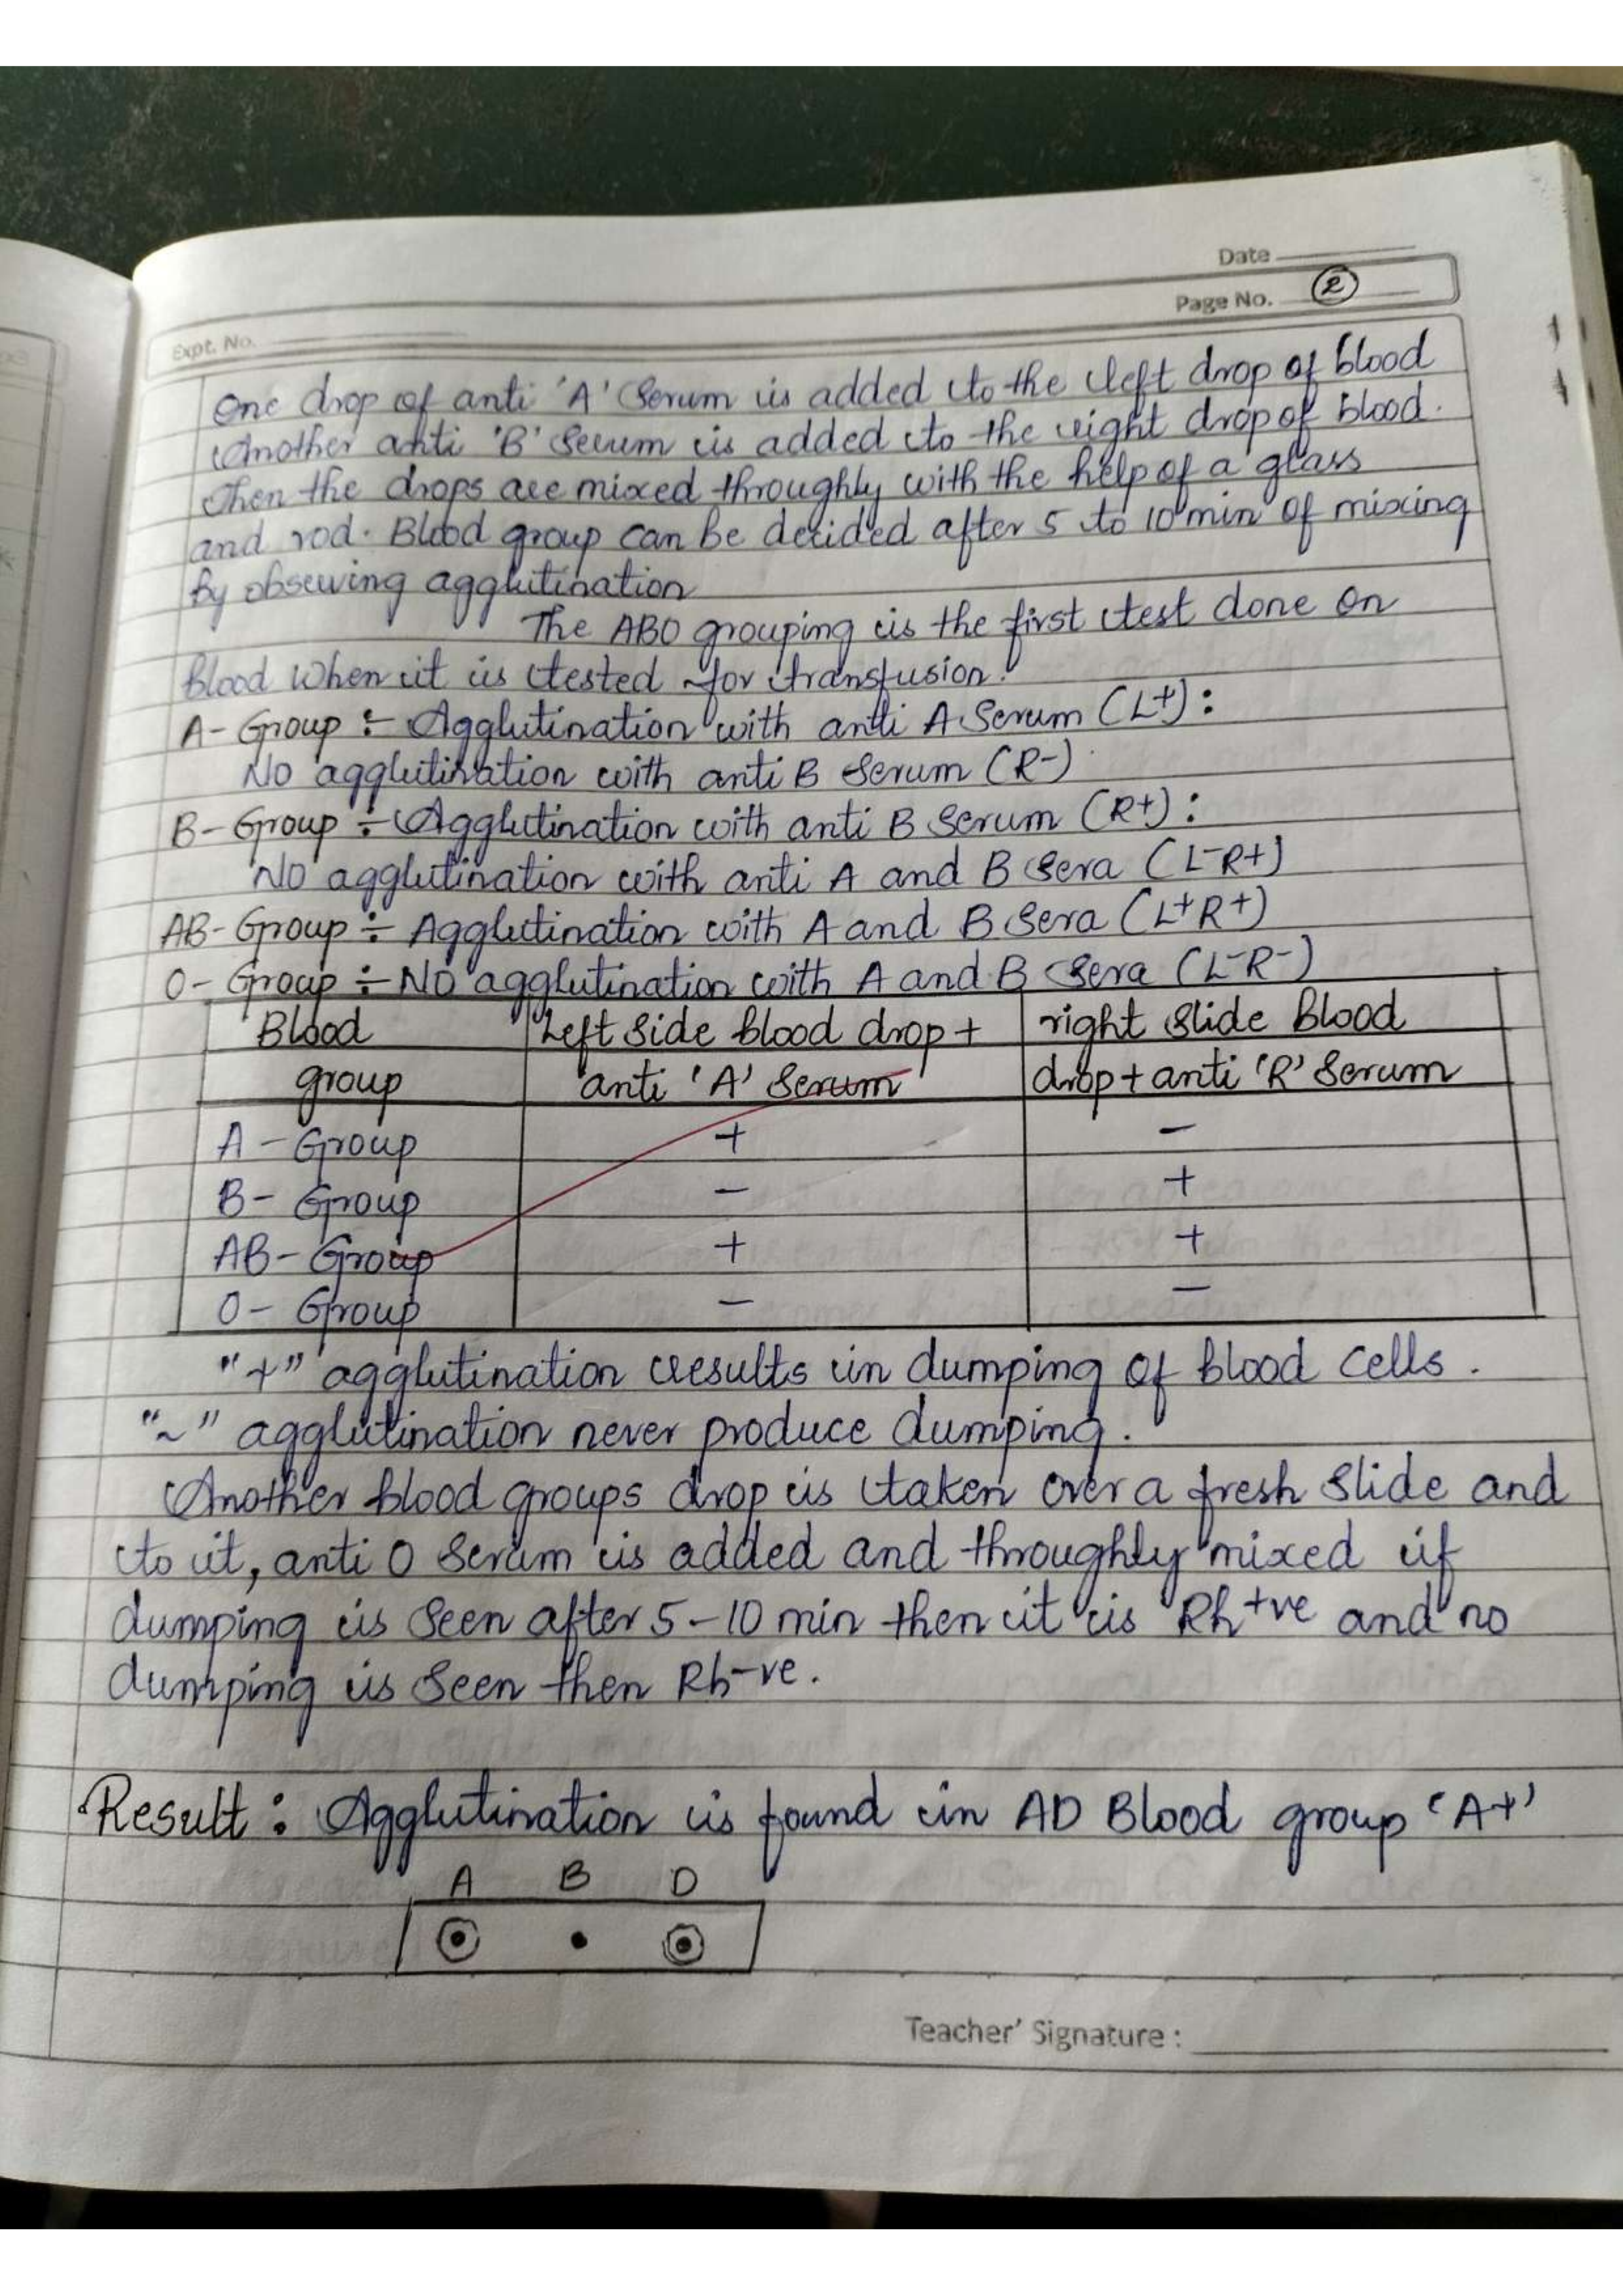 Date
Page No. 2
Expt. No.
One drop of anti 'A' Serum is added to the left drop of blood
Another anti 'B' Serum is added to the right drop of blood.
Then the drops are mixed throughly with the help of a glass
and rod. Blood group can be decided after 5 to 10 min of mixing
by observing agglutination
The ABO grouping is the first test done on
blood when it is tested for transfusion.
A- Group :- Agglutination with anti A Serum (L+):
No agglutination with anti B Serum (R-)
B- Group :- Agglutination with anti B Serum (R+):
No agglutination with anti A and B Sera (L-R+)
AB- Group :- Agglutination with A and B Sera (L+R+)
O- Group :- No agglutination with A and B Sera (L-R-)
Blood group | Left side blood drop + anti 'A' Serum | right slide Blood drop + anti 'R' Serum
A - Group | + | -
B- Group | - | +
AB- Group | + | +
O- Group | - | -
"+" agglutination results in dumping of blood cells.
"~" agglutination never produce dumping.
Another blood groups drop is taken over a fresh slide and
to it, anti O serum is added and throughly mixed if
dumping is seen after 5-10 min then it is Rh+ve and no
dumping is seen then Rh-ve.
Result : Agglutination is found in AD Blood group 'A+'
A B D
Teacher' Signature :